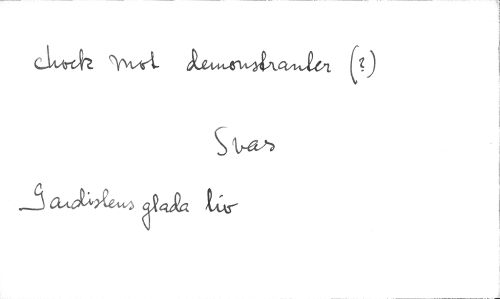 chock mot demonstranter (?)
Svar
Gardistens glada liv